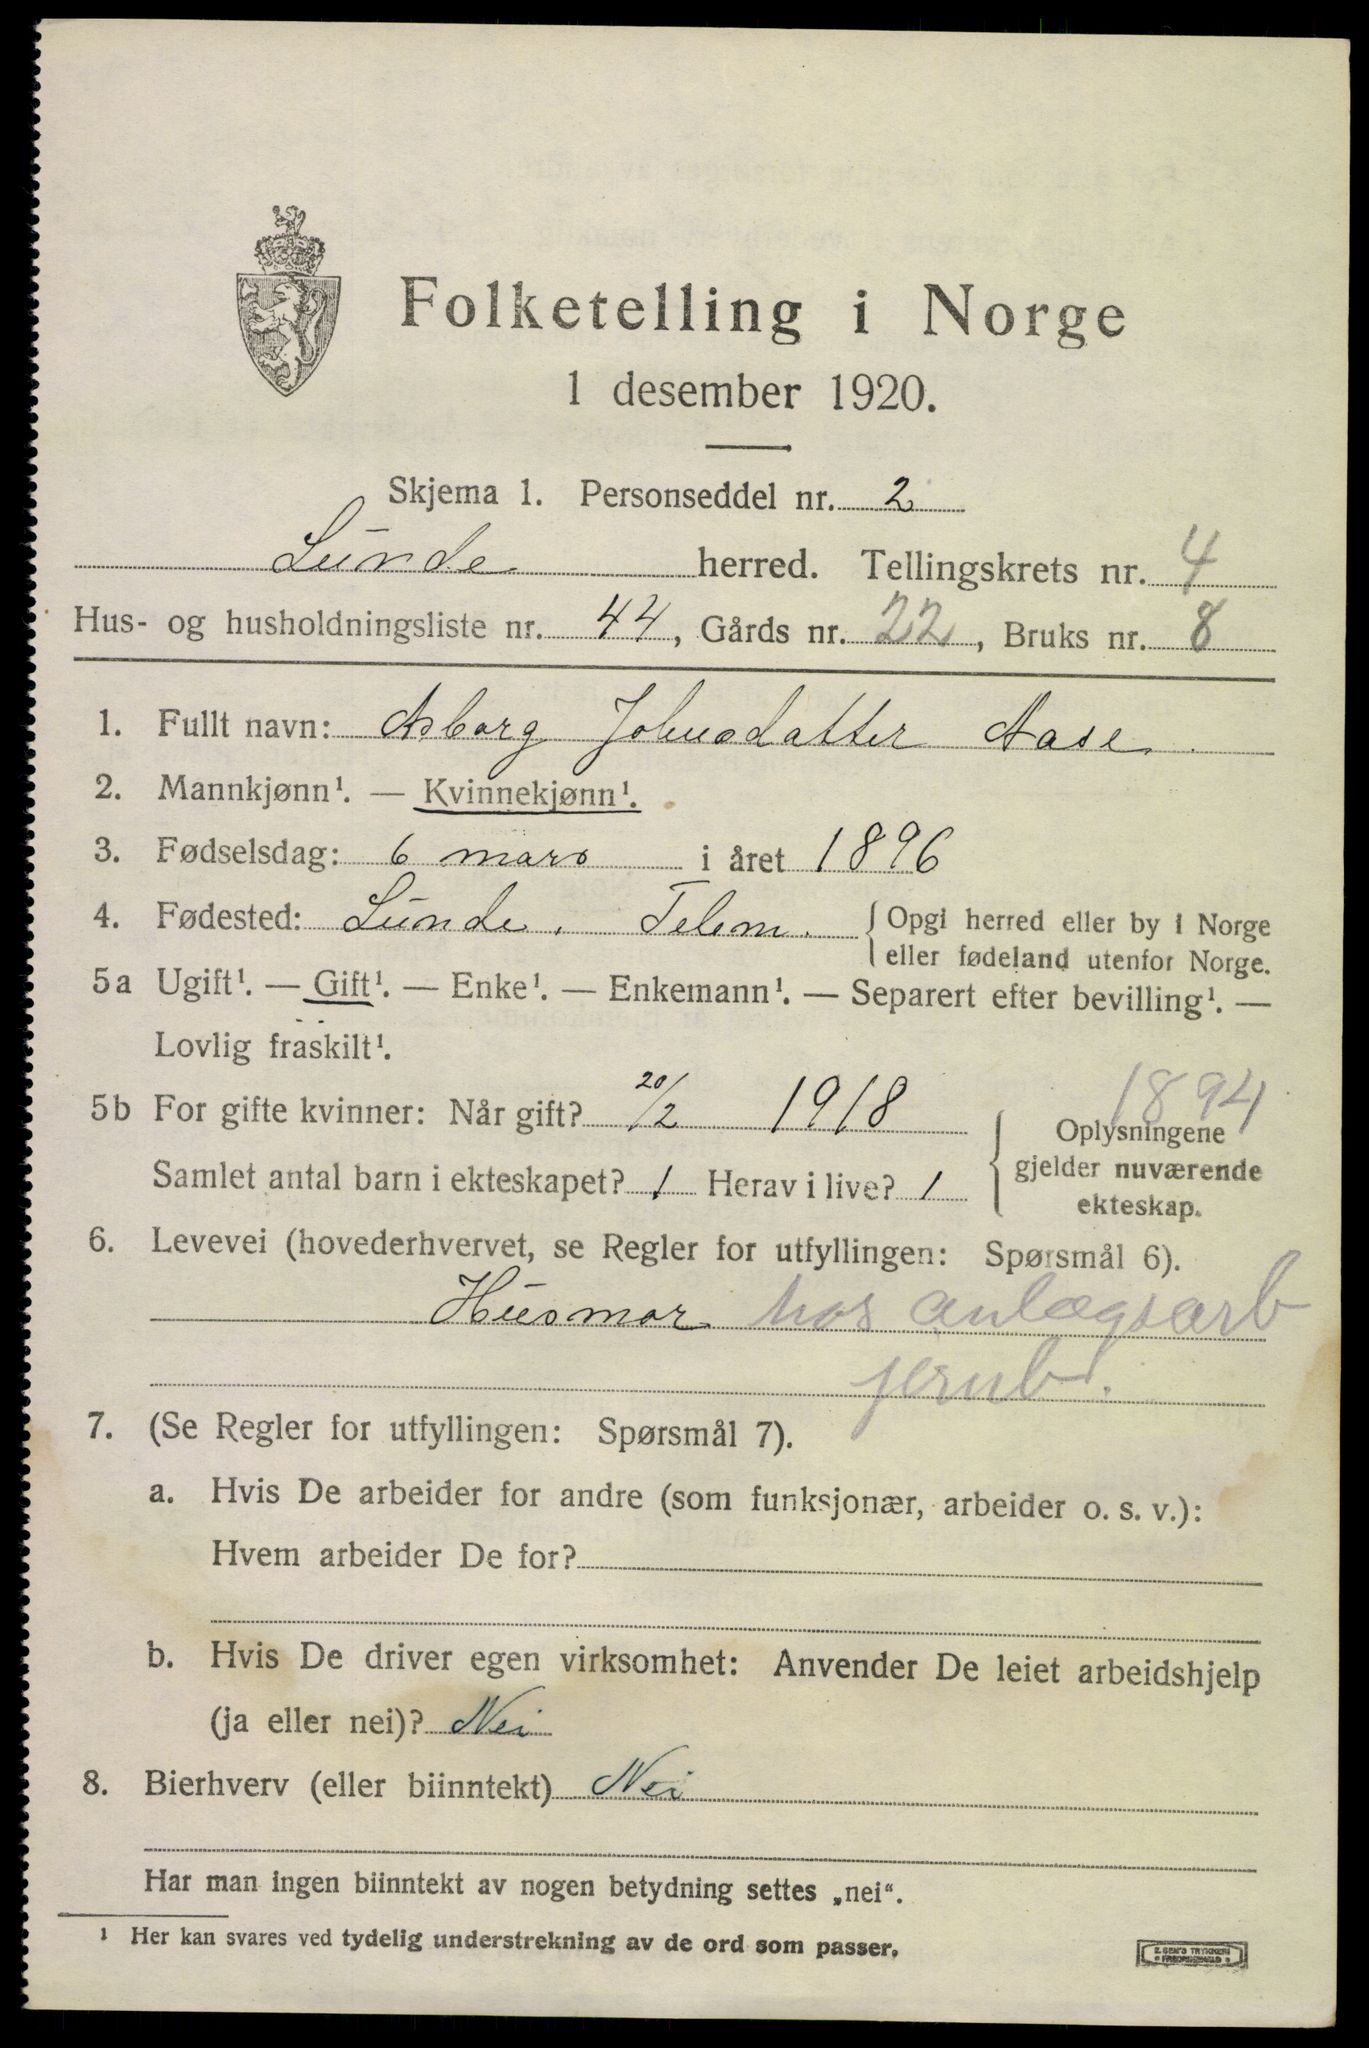 Folketelling i Norge
1 desember 1920.
Skjema 1. Personseddel nr. 2
Lunde herred. Tellingskrets nr. 4
Hus- og husholdningsliste nr. 44, Gårds nr. 22, Bruks nr. 8
1. Fullt navn: Asborg Johnsdatter Aase.
2. Mannkjønn¹. — Kvinnekjønn¹.
3. Fødselsdag: 6 mars i året 1896
4. Fødested: Lunde, Telem. { Opgi herred eller by i Norge
eller fødeland utenfor Norge.
5a Ugift¹. — Gift¹. — Enke¹. — Enkemann¹. — Separert efter bevilling¹. —
Lovlig fraskilt¹.
1894
5b For gifte kvinner: Når gift? 20/2 1918 { Oplysningene
gjelder nuværende
ekteskap.
Samlet antal barn i ekteskapet? 1 Herav i live? 1
6. Levevei (hovederhvervet, se Regler for utfyllingen: Spørsmål 6).
Husmor hos anlægsarb
jernb.
7. (Se Regler for utfyllingen: Spørsmål 7).
a. Hvis De arbeider for andre (som funksjonær, arbeider o. s. v.):
Hvem arbeider De for?
b. Hvis De driver egen virksomhet: Anvender De leiet arbeidshjelp
(ja eller nei)? Nei
8. Bierhverv (eller biinntekt) Nei
Har man ingen biinntekt av nogen betydning settes „nei“.
¹ Her kan svares ved tydelig understrekning av de ord som passer.